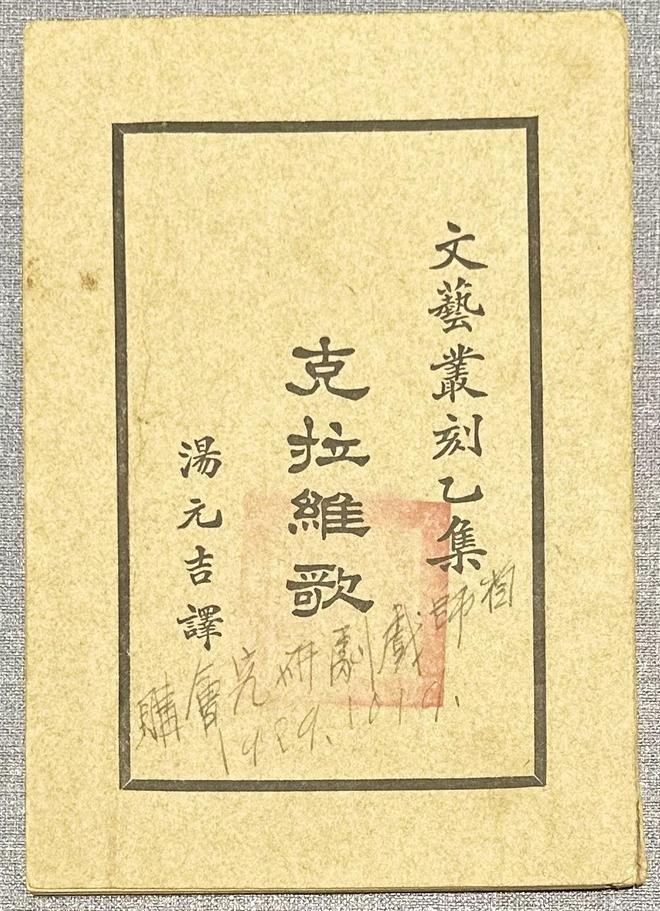 文藝叢刻乙集
克拉維歌
湯元吉譯
師戲劇研究會購
1929.10.19.